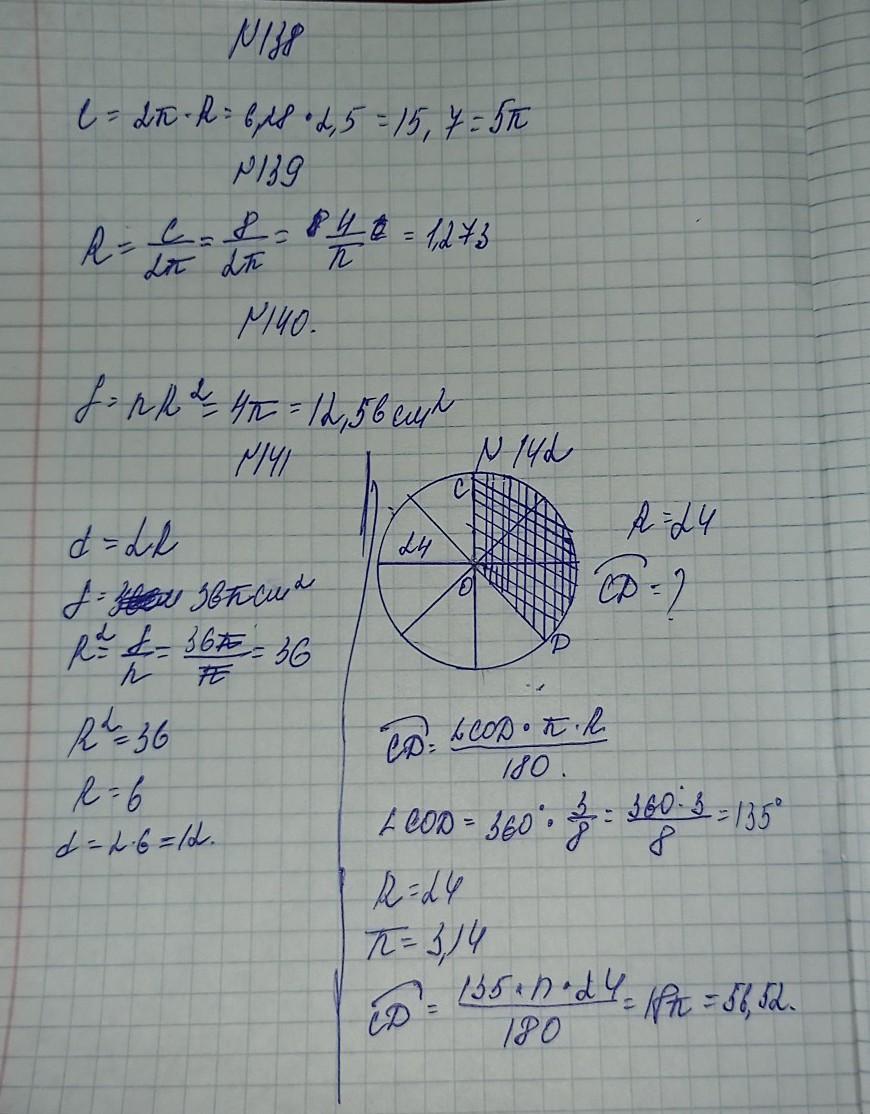 N138
C = 2π · R = 6,28 · 2,5 = 15,7 = 5π
N139
R = C/2π = 8/2π = 4/π = 1,273
N140.
S = πR² = 4π = 12,56 см²
N141
d = 2R
S = 36π см²
R² = S/π = 36π/π = 36
R² = 36
R = 6
d = 2·6 = 12.
N 142
C
24
O
D
R = 24
CD = ?
CD = ∠COD · π · R / 180.
∠COD = 360° · 3/8 = 360° · 3 / 8 = 135°
R = 24
π = 3,14
CD = 135 · π · 24 / 180 = 18π = 56,52.